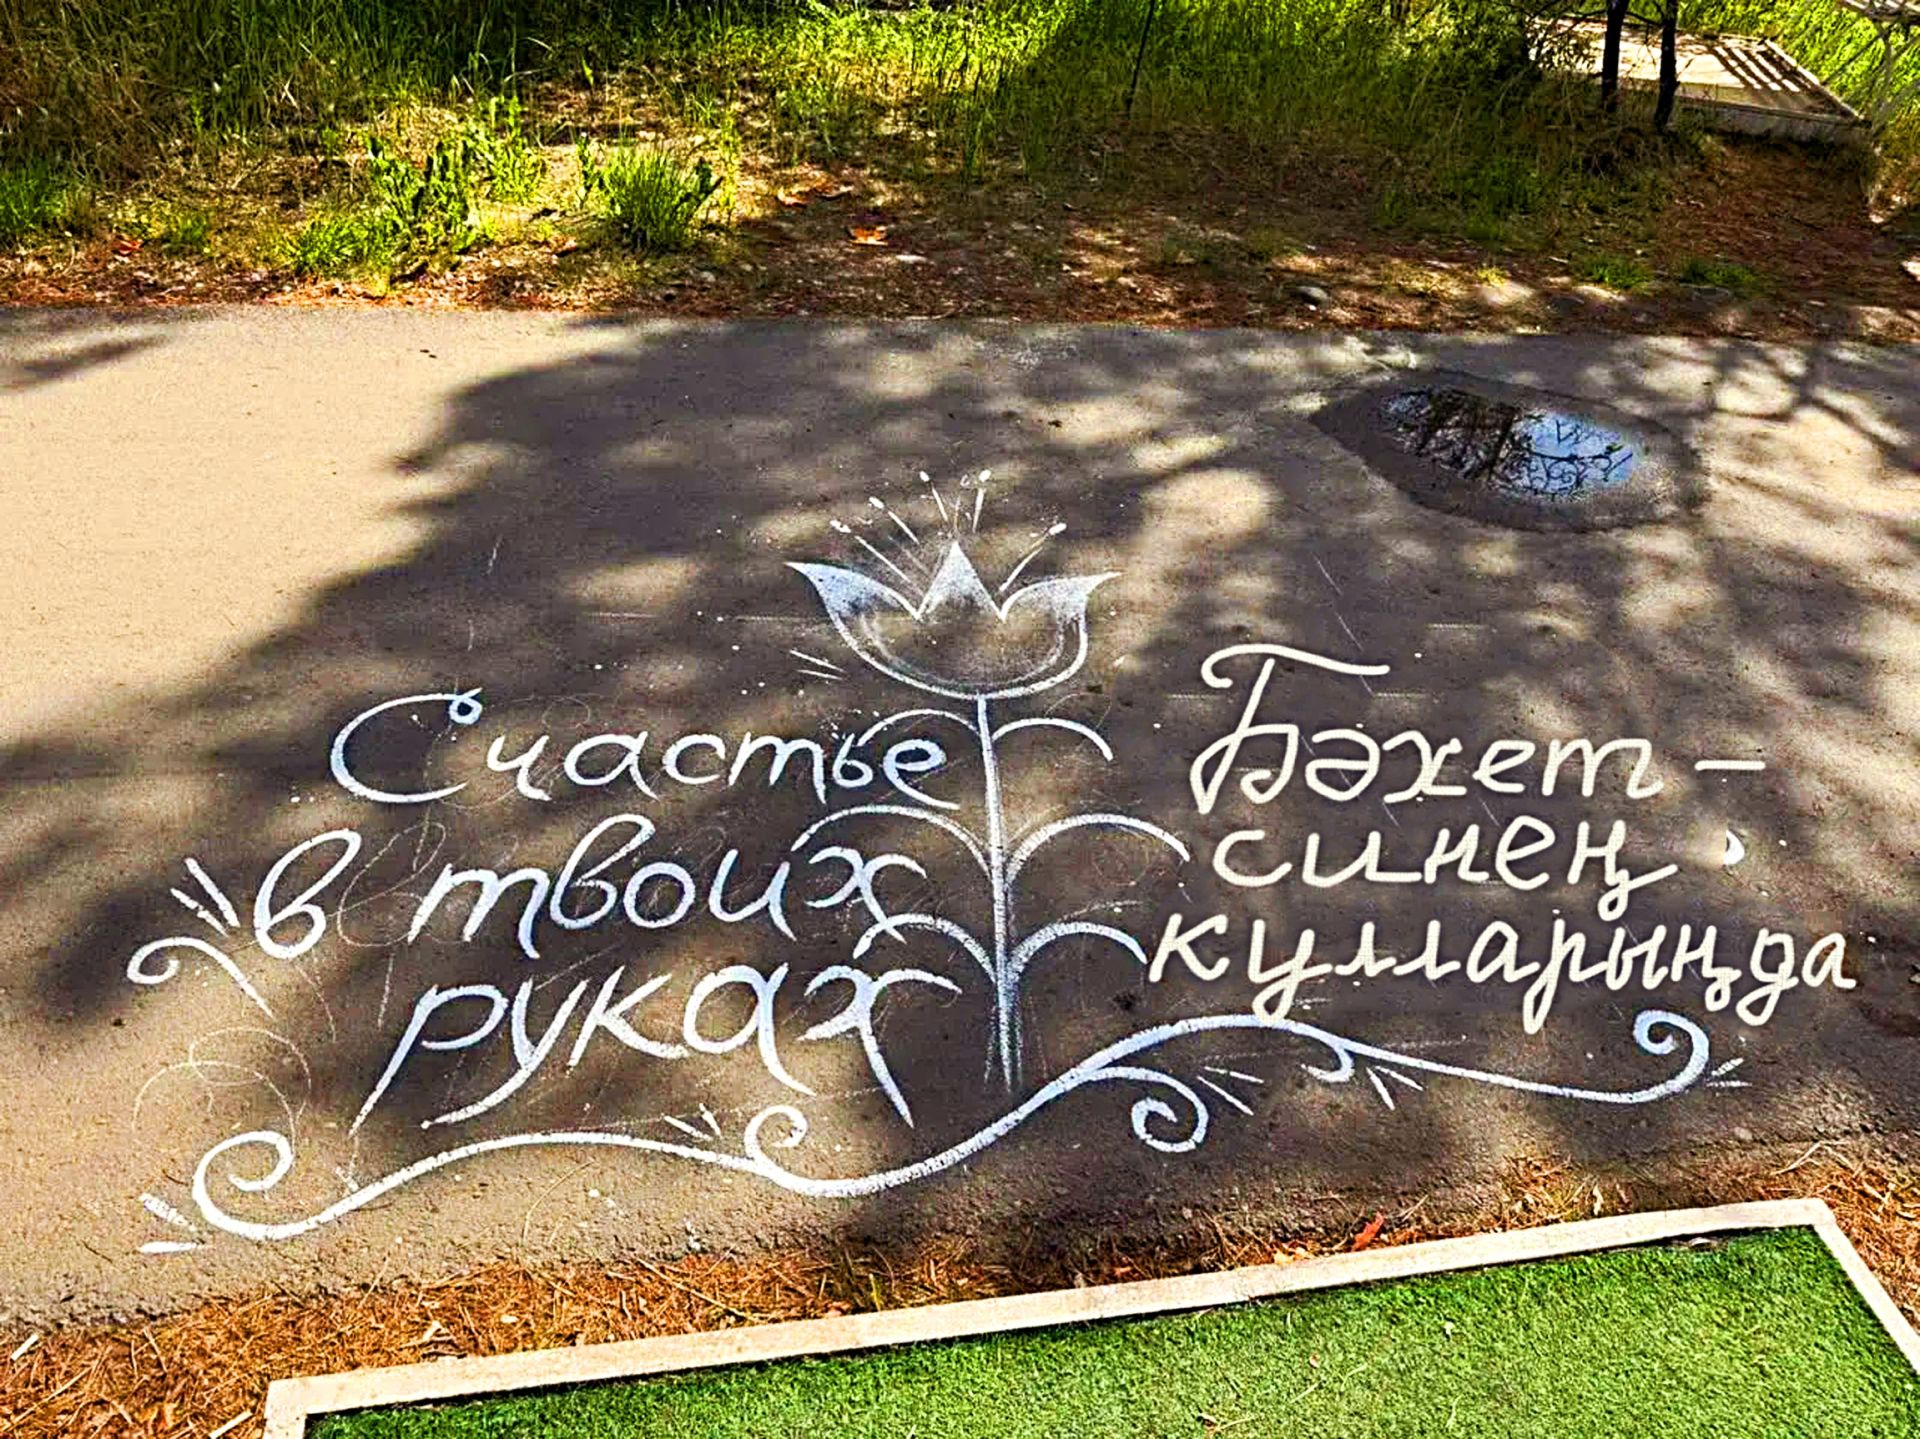 Счастье
в твоих
руках
Бәхет –
синең
кулларыңда